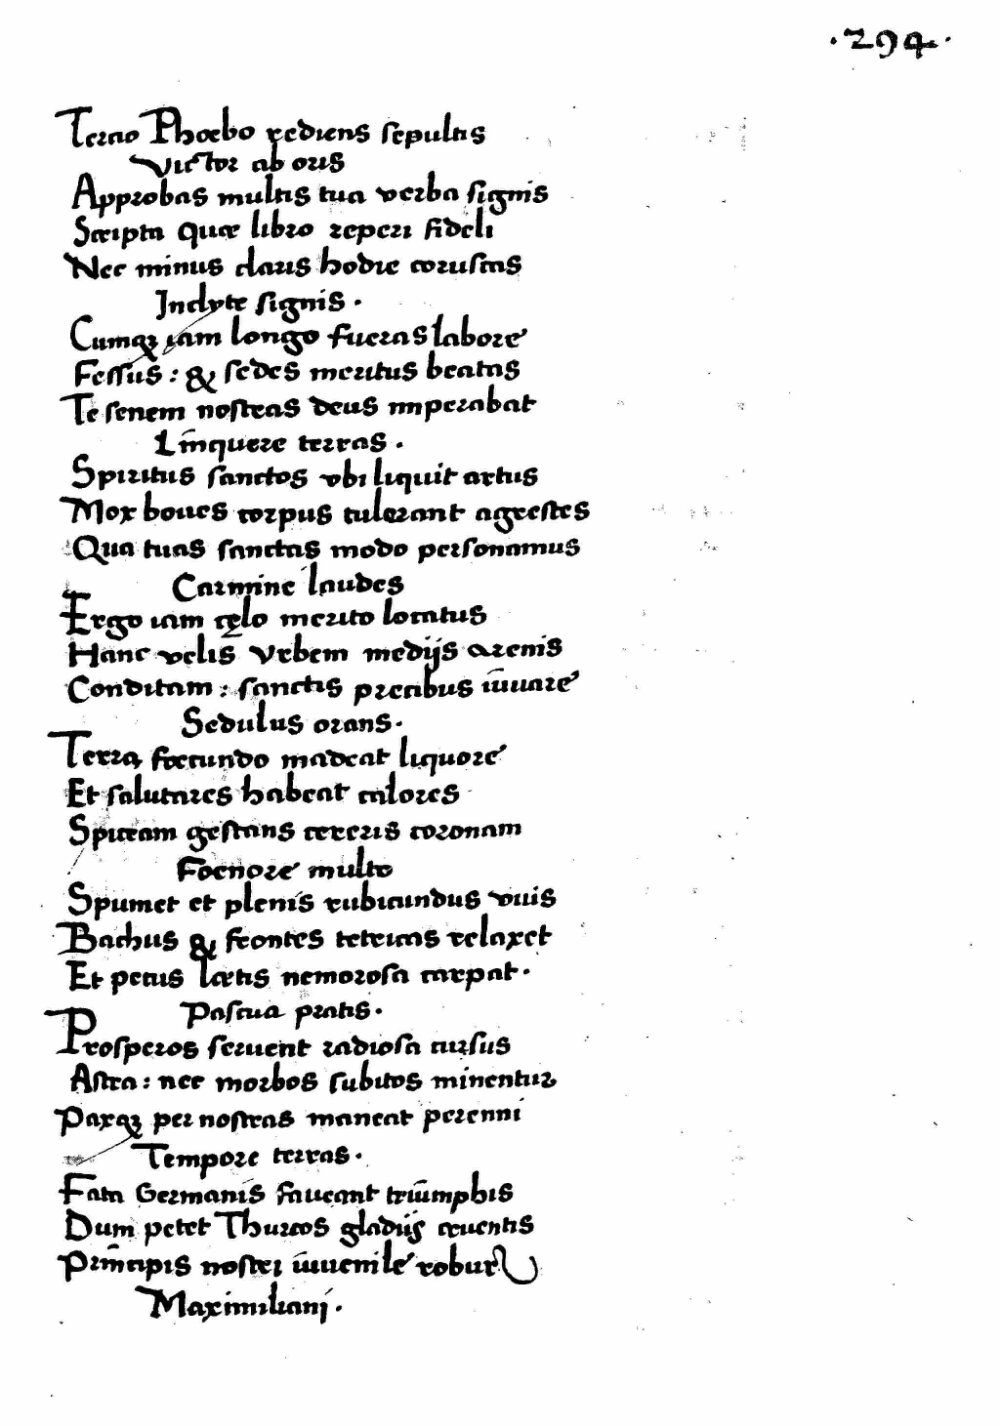 ·294·
Tercio Phoebo rediens sepultis
Victor ab oris
Approbas multis tua verba signis
Scripta quæ libro reperi fideli
Nec minus claris hodie coruscas
Inclyte signis.
Cumqȝ iam longo fueras labore
Fessus: & sedes meritus beatas
Te senem nostras deus imperabat
Linquere terras.
Spiritus sanctos vbi liquit artus
Mox boues corpus tulerant agrestes
Qua tuas sanctas modo personamus
Carmine laudes
Ergo iam cęlo merito locatus
Hanc velis Vrbem medijs arenis
Conditam: sanctis precibus iuuare
Sedulus orans.
Terra foecundo madeat liquore
Et salutares habeat calores
Spiceam gestans cereris coronam
Foenore multo
Spumet et plenis rubicundus vuis
Bachus & frontes tetricas relaxet
Et pecus lætis nemorosa carpat.
Pascua pratis.
Prosperos seruent radiosa cursus
Astra: nec morbos subitos minentur
Paxqȝ per nostras maneat perenni
Tempore terras.
Fata Germanis faueant triumphis
Dum petet Thurcos gladijs cruentis
Principis nostri iuuenile robur
Maximiliani.